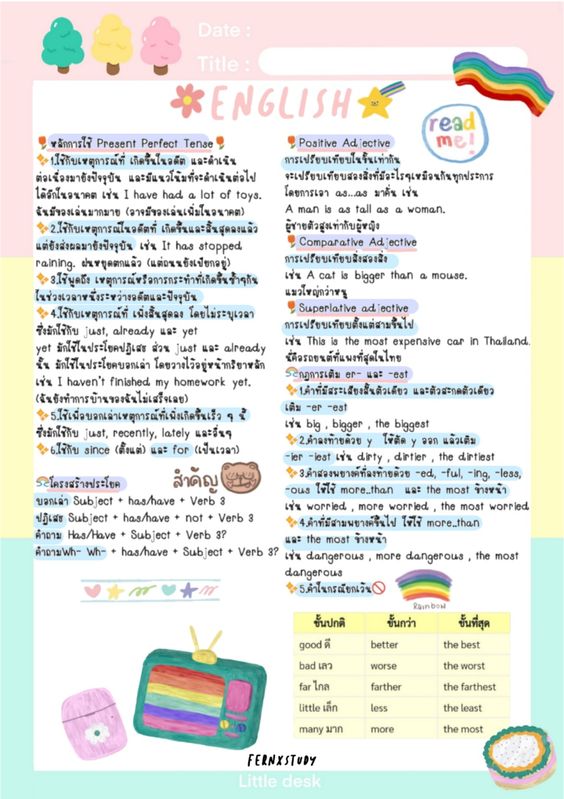 Date :
Title :
ENGLISH
read me!
หลักการใช้ Present Perfect Tense
1.ใช้กับเหตุการณ์ที่ เกิดขึ้นในอดีต และดำเนิน
ต่อเนื่องมายังปัจจุบัน และมีแนวโน้มที่จะดำเนินต่อไป
ได้อีกในอนาคต เช่น I have had a lot of toys.
ฉันมีของเล่นมากมาย (อาจมีของเล่นเพิ่มในอนาคต)
2.ใช้กับเหตุการณ์ในอดีตที่ เกิดขึ้นและสิ้นสุดลงแล้ว
แต่ยังส่งผลมายังปัจจุบัน เช่น It has stopped
raining. ฝนหยุดตกแล้ว (แต่ถนนยังเปียกอยู่)
3.ใช้พูดถึง เหตุการณ์หรือการกระทำที่เกิดขึ้นซ้ำๆกัน
ในช่วงเวลาหนึ่งระหว่างอดีตและปัจจุบัน
4.ใช้กับเหตุการณ์ที่ เพิ่งสิ้นสุดลง โดยไม่ระบุเวลา
ซึ่งมักใช้กับ just, already และ yet
yet มักใช้ในประโยคปฏิเสธ ส่วน just และ already
นั้น มักใช้ในประโยคบอกเล่า โดยวางไว้อยู่หน้ากริยาหลัก
เช่น I haven't finished my homework yet.
(ฉันยังทำการบ้านของฉันไม่เสร็จเลย)
5.ใช้เพื่อบอกเล่าเหตุการณ์ที่เพิ่งเกิดขึ้นเร็ว ๆ นี้
ซึ่งมักใช้กับ just, recently, lately และอื่นๆ
6.ใช้กับ since (ตั้งแต่) และ for (เป็นเวลา)
โครงสร้างประโยค
สำคัญ
บอกเล่า Subject + has/have + Verb 3
ปฏิเสธ Subject + has/have + not + Verb 3
คำถาม Has/Have + Subject + Verb 3?
คำถามWh- Wh- + has/have + Subject + Verb 3?
Positive Adjective
การเปรียบเทียบในขั้นเท่ากัน
จะเปรียบเทียบสองสิ่งที่มีอะไรๆเหมือนกันทุกประการ
โดยการเอา as...as มาคั่น เช่น
A man is as tall as a woman.
ผู้ชายตัวสูงเท่ากับผู้หญิง
Comparative Adjective
การเปรียบเทียบสิ่งสองสิ่ง
เช่น A cat is bigger than a mouse.
แมวใหญ่กว่าหนู
Superlative adjective
การเปรียบเทียบตั้งแต่สามขึ้นไป
เช่น This is the most expensive car in Thailand.
นี่คือรถยนต์ที่แพงที่สุดในไทย
กฎการเติม er- และ -est
1.คำที่มีสระเสียงสั้นตัวเดียว และตัวสะกดตัวเดียว
เติม -er -est
เช่น big , bigger , the biggest
2.คำลงท้ายด้วย y ให้ตัด y ออก แล้วเติม
-ier -iest เช่น dirty , dirtier , the dirtiest
3.คำสองพยางค์ที่ลงท้ายด้วย -ed, -ful, -ing, -less,
-ous ให้ใช้ more...than และ the most ข้างหน้า
เช่น worried , more worried , the most worried
4.คำที่มีสามพยางค์ขึ้นไป ให้ใช้ more...than
และ the most ข้างหน้า
เช่น dangerous , more dangerous , the most
dangerous
5.คำในกรณียกเว้น
Rainbow
ขั้นปกติ ขั้นกว่า ขั้นที่สุด
good ดี better the best
bad เลว worse the worst
far ไกล farther the farthest
little เล็ก less the least
many มาก more the most
FERNXSTUDY
Little desk